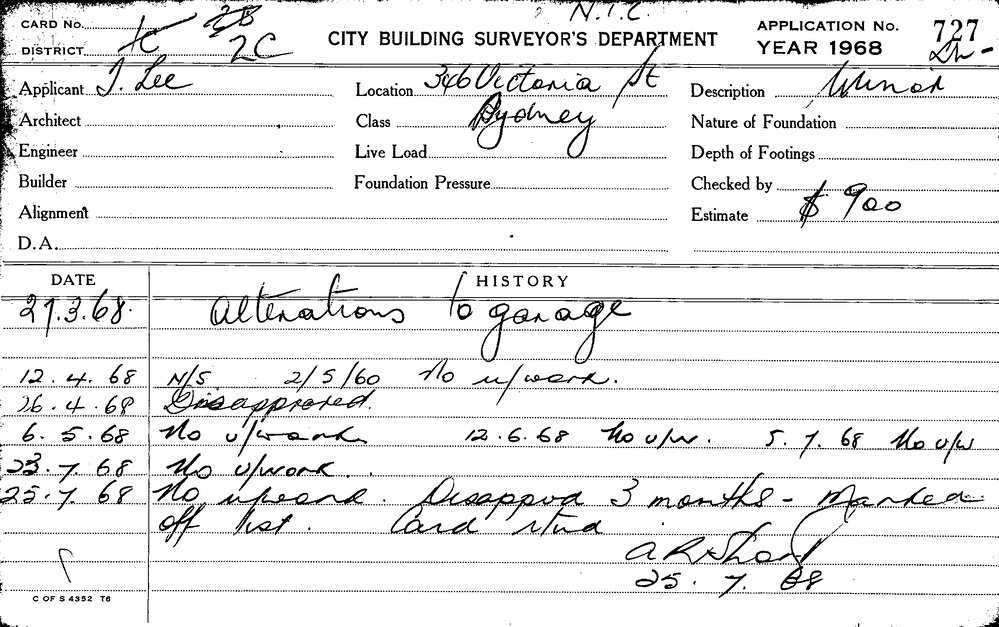 N.I.C.
CARD No. 2B
DISTRICT 2C
CITY BUILDING SURVEYOR'S DEPARTMENT
APPLICATION No. 727
YEAR 1968
Applicant J. Lee
Location 346 Victoria St
Description Minor
Architect
Class Sydney
Nature of Foundation
Engineer
Live Load
Depth of Footings
Builder
Foundation Pressure
Checked by
Alignment
Estimate $ 900
D.A.
DATE HISTORY
27.3.68. Alterations to garage
12.4.68 N/S. 2/5/60 No u/work.
26.4.68 Disapproved.
6.5.68 No u/work 12.6.68 No u/w. 5.7.68 No u/w
23.7.68 No u/work.
25.7.68 No upward. Disappvd 3 months - Marked
off list. Card rtnd
25.7.68
C OF S 4352 T6